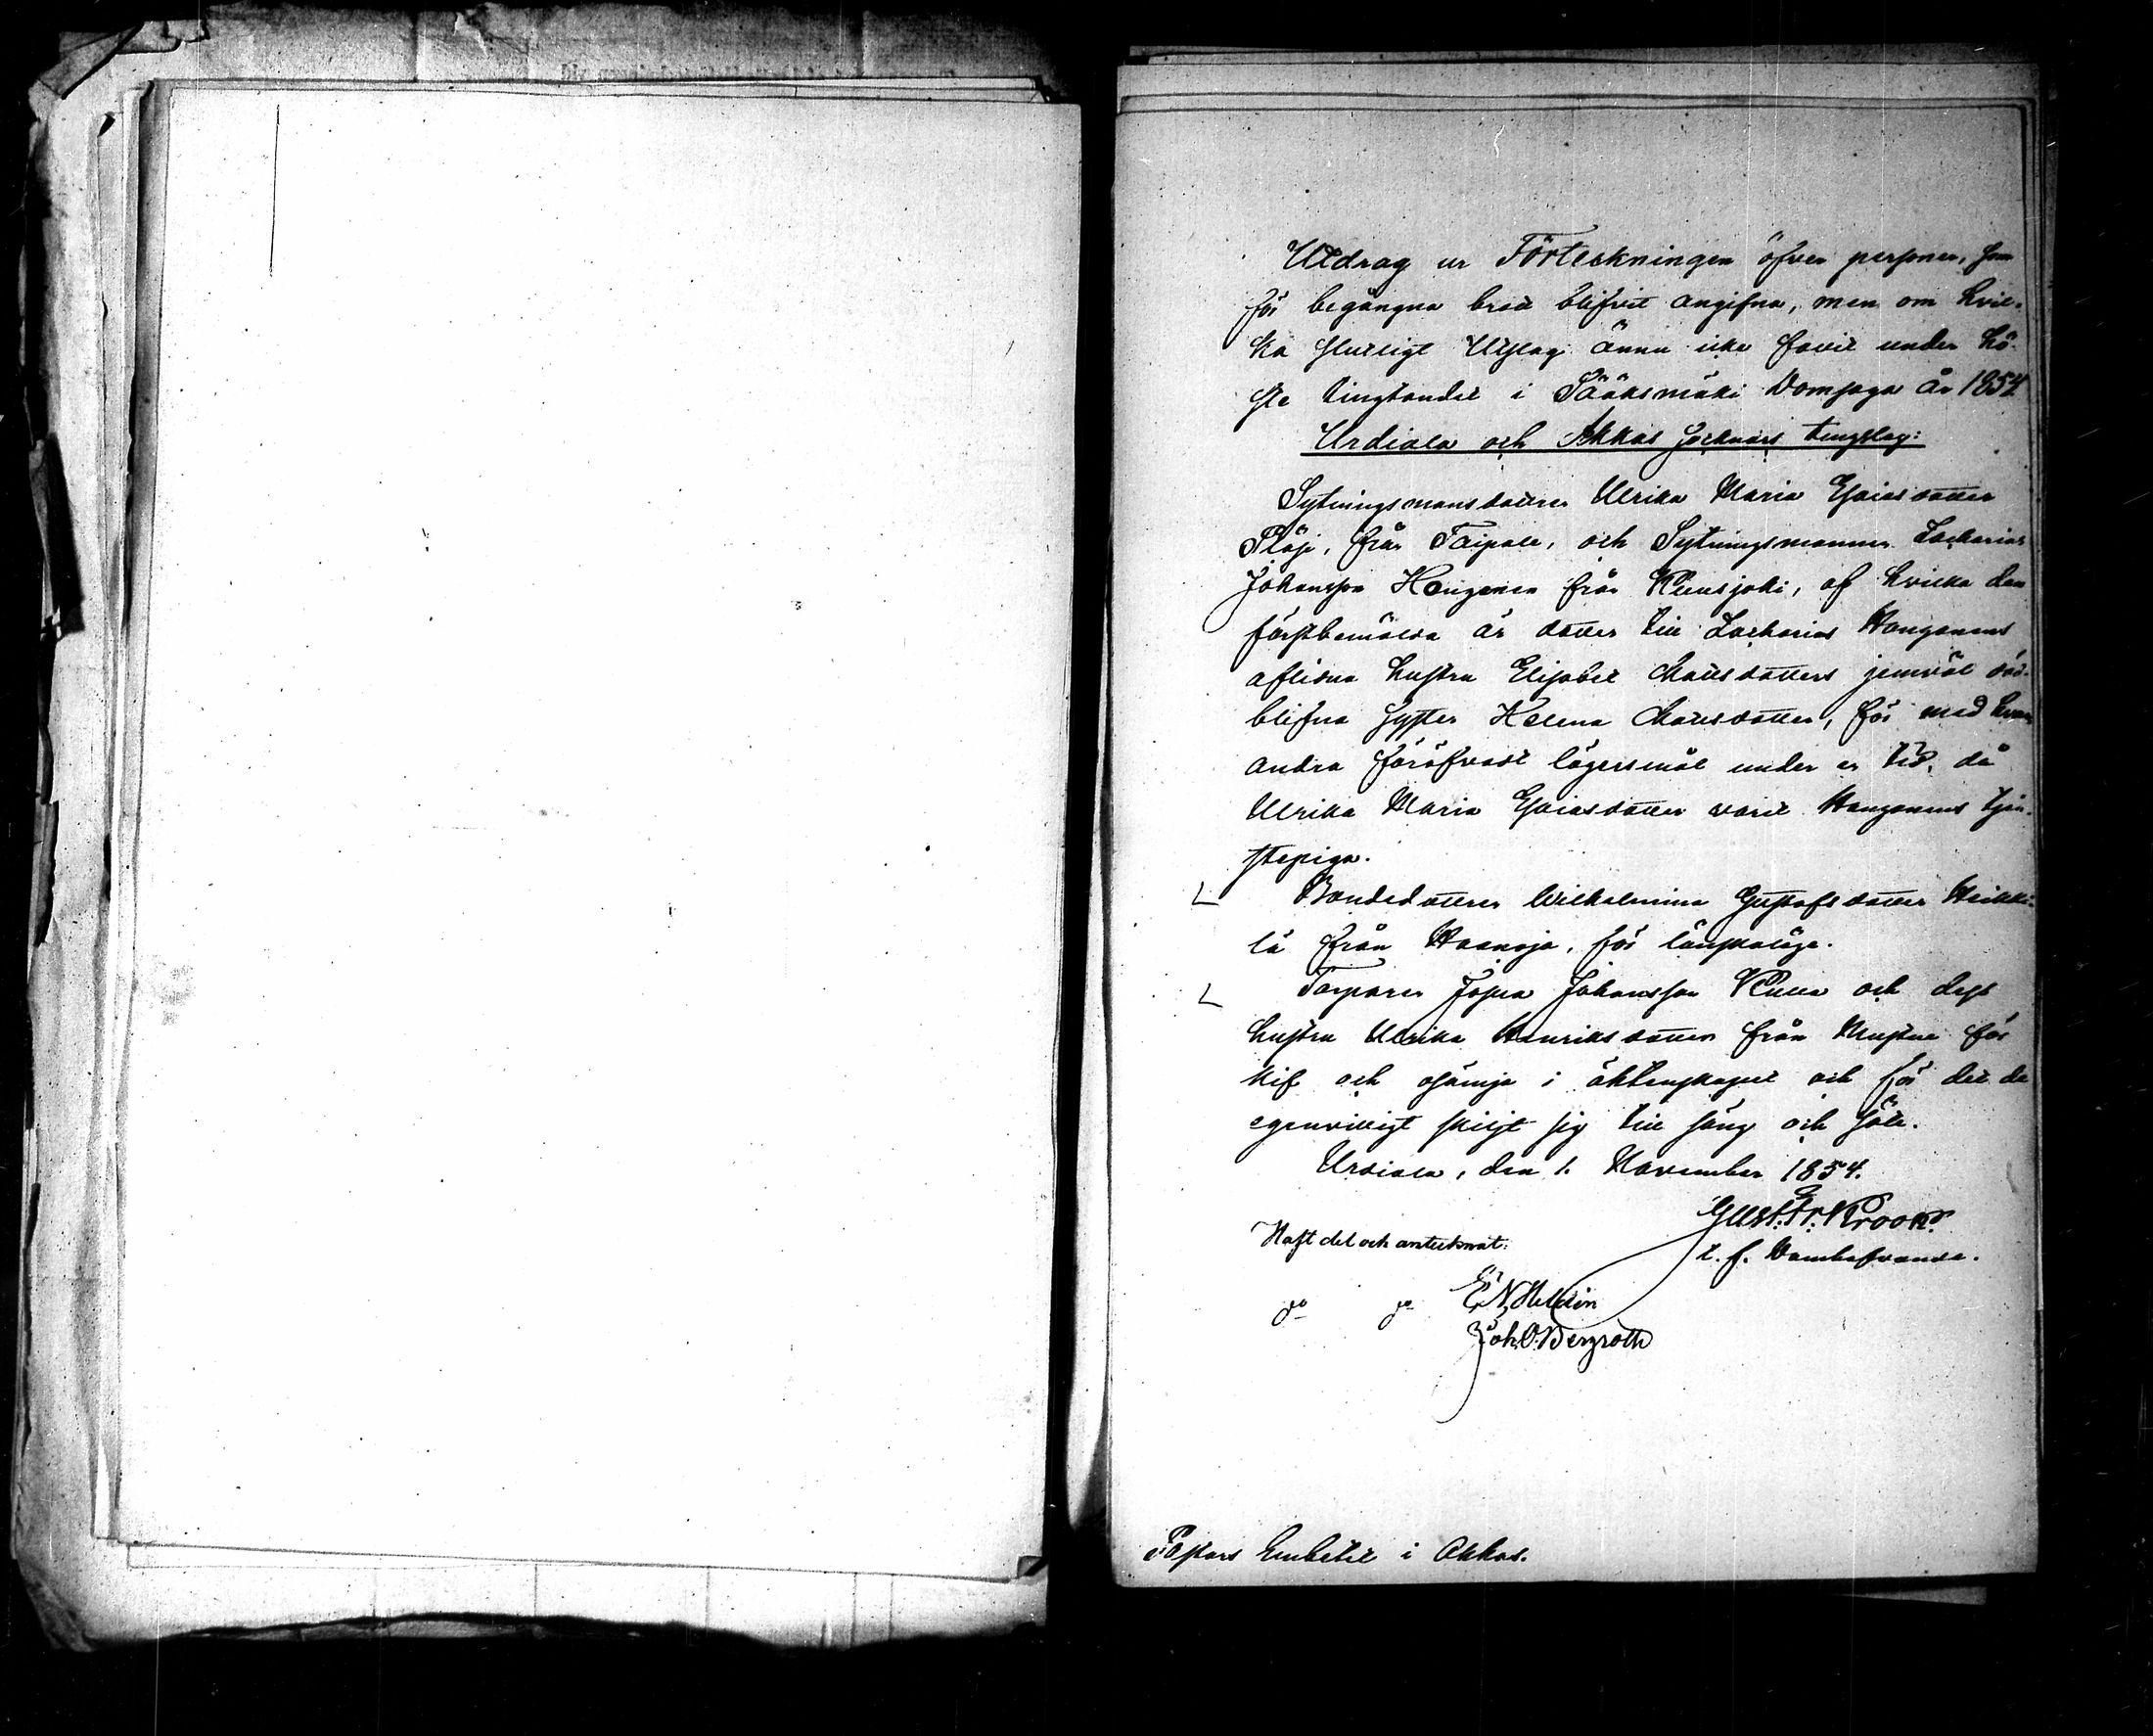 Utdrag ur Förteckningen öfver personer, som
för begångna brott blifvit angifna, men om hvil-
ka slutligt Utslag ännu icke fallit under hö-
ste tingtandet i Sääksmäki Domsaga År 1854
Urdiala och Akkas Socknars tingslag:
Sytningsmansdottren Ulrika Maria Esaiasdotter
Plöji, från Taipale, och Sytningsmannen Zacharias
Johansson Hongonen från Kuusjoki, af hvilka den
förstbemälda är dotter till Zacharias Hongonens
aflidna hustru Elisabet Mattsdotters jemväl död-
blifna Syster Helena Mattsdotter, för med hvar-
andra föröfvadt lägersmål under en tid, då
Ulrika Maria Esaiasdotter varit Hongonens tjen-
stepiga.
Bondedottren Wilhelmina Gustafsdotter Heikki-
lä från Haanoja, för lönskaläge.
Torparen Josua Johansson och dess
hustru Ulrika Henriksdotter från för
kif och osämja i äktenskapet och för det de
egenvilligt skiljt sig till säng och säte.
Urdiala, den 1. November 1854.
Gust. Fr. Kroook.
t. f. Domhafvande.
Haft del och antecknat:
E. N. Melin
Joh. O. Bergroth
Pastors Embetet i Akkas.